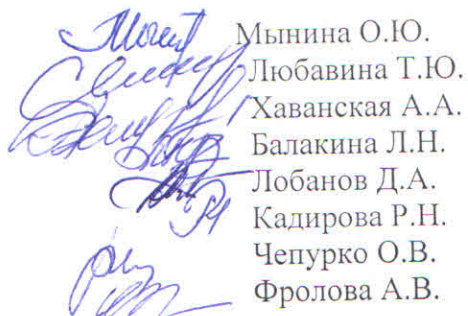 Мынина О.Ю.
Любавина Т.Ю.
Хаванская А.А.
Балакина Л.Н.
Лобанов Д.А.
Кадирова Р.Н.
Чепурко О.В.
Фролова А.В.